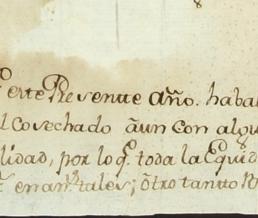 este Presente año. haba
l cosechado aun con algu
lidad, por lo q̃. toda la Equid
en an.s tales; ōtro tanto